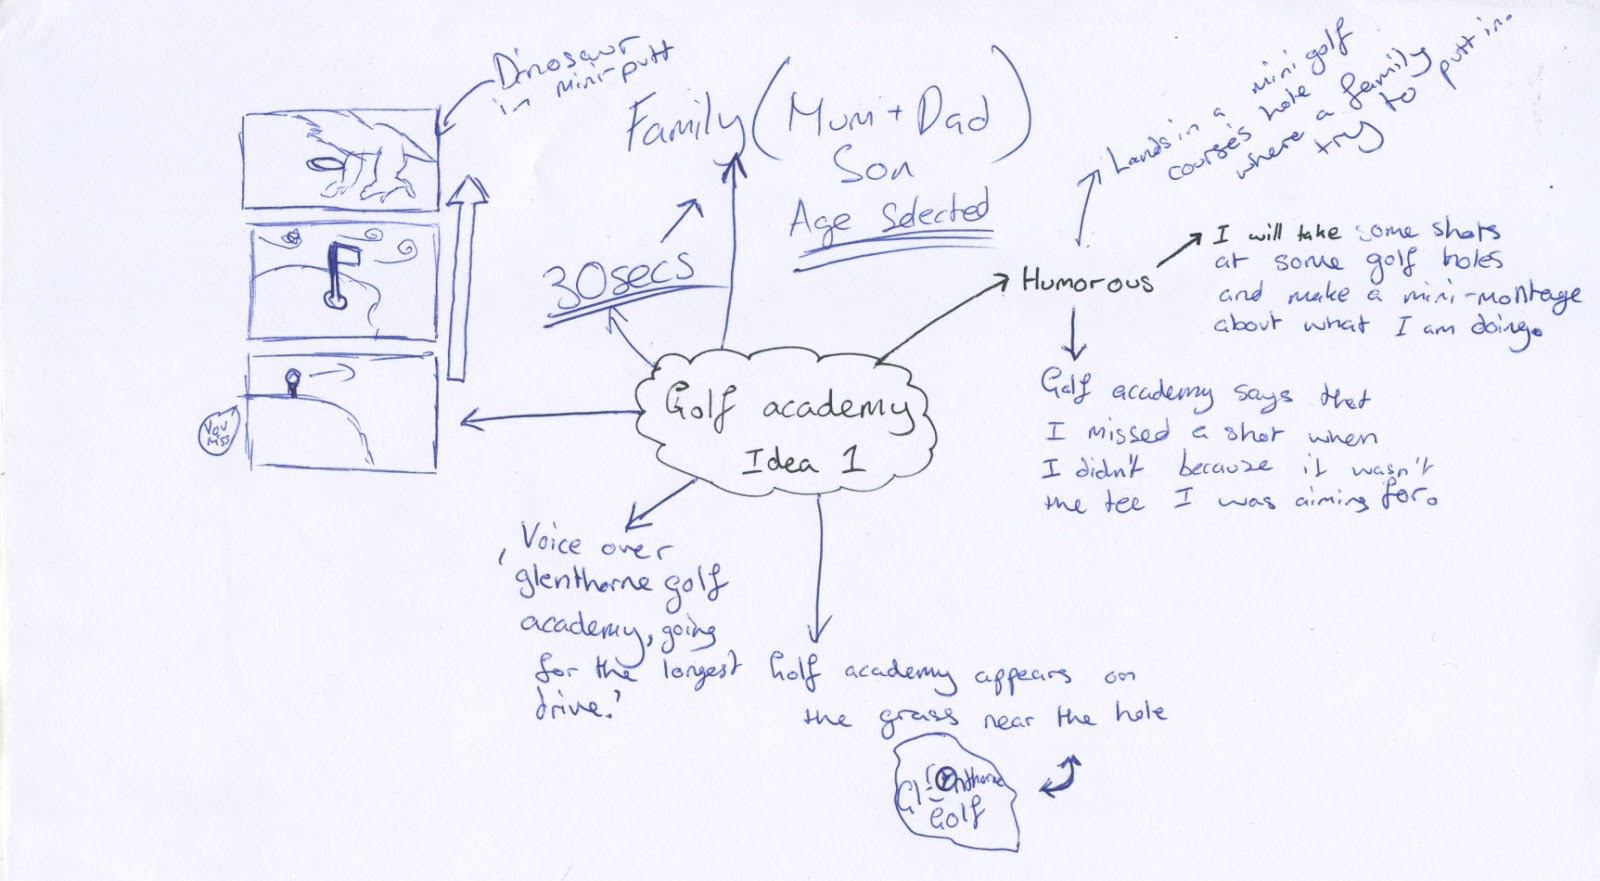 Dinosaur
in mini-putt
Family (Mum + Dad)
Son
Age Selected
30secs
Lands in a mini golf
courses hole
where a family
try to putt in.
Humorous
I will take some shots
at some golf holes
and make a mini-montage
about what I am doing.
Golf academy says that
I missed a shot when
I didn't because it wasn't
the tee I was aiming for.
Golf academy
Idea 1
You
miss
'Voice over
glenthorne golf
academy, going
for the longest
drive.'
Golf academy appears on
the grass near the hole
Glenthorne
Golf